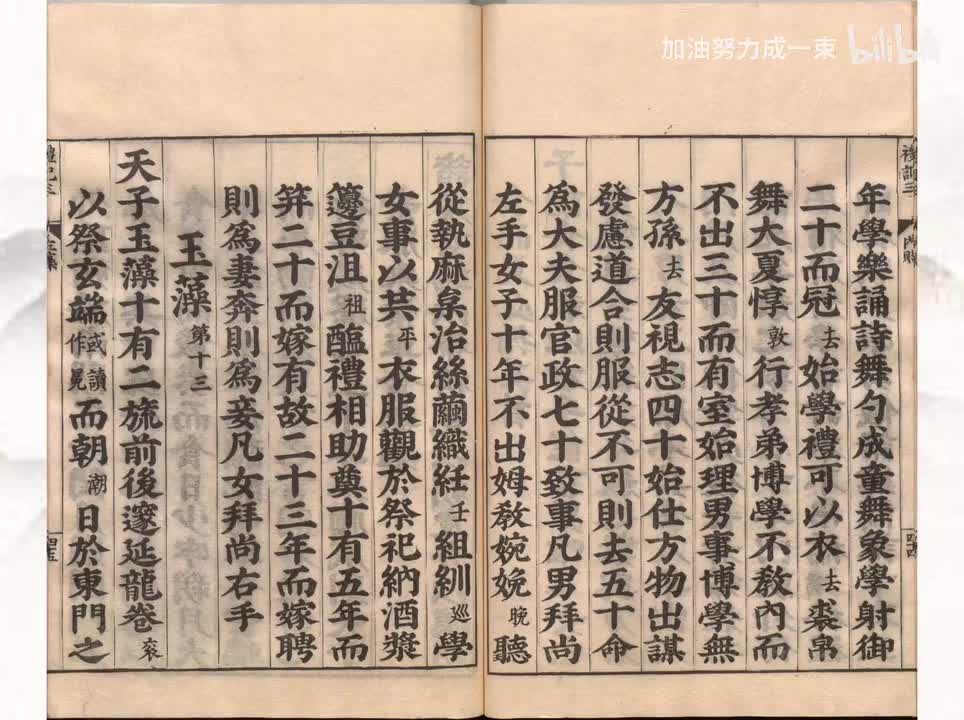 加油努力成一束 bilibili
年學樂誦詩舞勺成童舞象學射御
二十而冠去始學禮可以衣去裘帛
舞大夏惇敦行孝弟博學不敎內而
不出三十而有室始理男事博學無
方孫去友視志四十始仕方物出謀
發慮道合則服從不可則去五十命
爲大夫服官政七十致事凡男拜尚
左手女子十年不出姆敎婉娩晚聽
從執麻枲治絲繭織紝壬組紃巡學
女事以共平衣服觀於祭祀納酒漿
籩豆沮祖醢禮相助奠十有五年而
笄二十而嫁有故二十三年而嫁聘
則爲妻奔則爲妾凡女拜尚右手
玉藻第十三
天子玉藻十有二旒前後邃延龍卷衮
以祭玄端或讀作冕而朝潮日於東門之